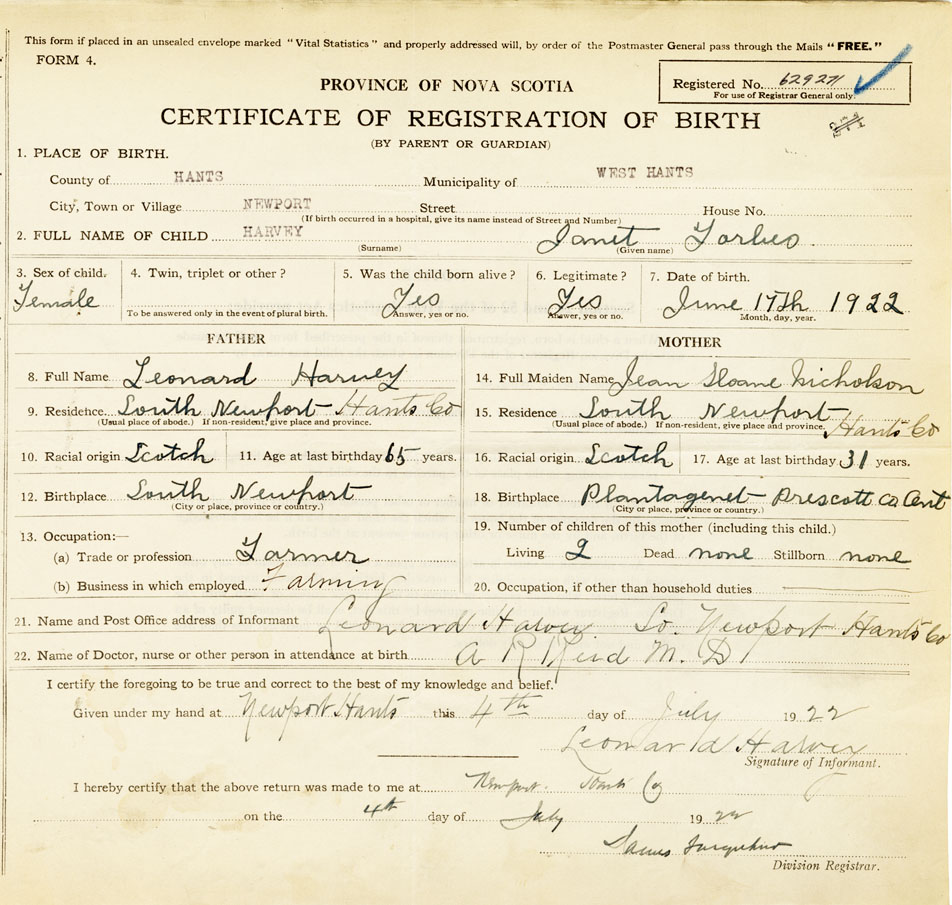 This form if placed in an unsealed envelope marked "Vital Statistics" and properly addressed will, by order of the Postmaster General pass through the Mails "FREE."
FORM 4.
Registered No. 629271
For use of Registrar General only.
PROVINCE OF NOVA SCOTIA
CERTIFICATE OF REGISTRATION OF BIRTH
(BY PARENT OR GUARDIAN)
1. PLACE OF BIRTH.
County of HANTS Municipality of WEST HANTS
City, Town or Village NEWPORT Street House No.
(If birth occurred in a hospital, give its name instead of Street and Number)
2. FULL NAME OF CHILD HARVEY Janet Forbes
(Surname) (Given name)
3. Sex of child. 4. Twin, triplet or other? 5. Was the child born alive? 6. Legitimate? 7. Date of birth.
Female Yes Yes June 17th 1922
To be answered only in the event of plural birth. Answer, yes or no. Answer, yes or no. Month, day, year.
FATHER
8. Full Name Leonard Harvey
9. Residence South Newport Hants Co
(Usual place of abode.) If non-resident, give place and province.
10. Racial origin Scotch 11. Age at last birthday 65 years.
12. Birthplace South Newport
(City or place, province or country.)
13. Occupation:—
(a) Trade or profession Farmer
(b) Business in which employed Farming
MOTHER
14. Full Maiden Name Jean Sloane Nicholson
15. Residence South Newport
(Usual place of abode.) If non-resident, give place and province. Hants Co
16. Racial origin Scotch 17. Age at last birthday 31 years.
18. Birthplace Plantagenet Prescott Co Ont
(City or place, province or country.)
19. Number of children of this mother (including this child.)
Living 2 Dead none Stillborn none
20. Occupation, if other than household duties
21. Name and Post Office address of Informant Leonard Harvey So. Newport Hants Co
22. Name of Doctor, nurse or other person in attendance at birth A R Reid M. D
I certify the foregoing to be true and correct to the best of my knowledge and belief.
Given under my hand at Newport Hants this 4th day of July 1922
Leonard Harvey
Signature of Informant.
I hereby certify that the above return was made to me at Newport Hants Co
on the 4th day of July 1922
James
Division Registrar.